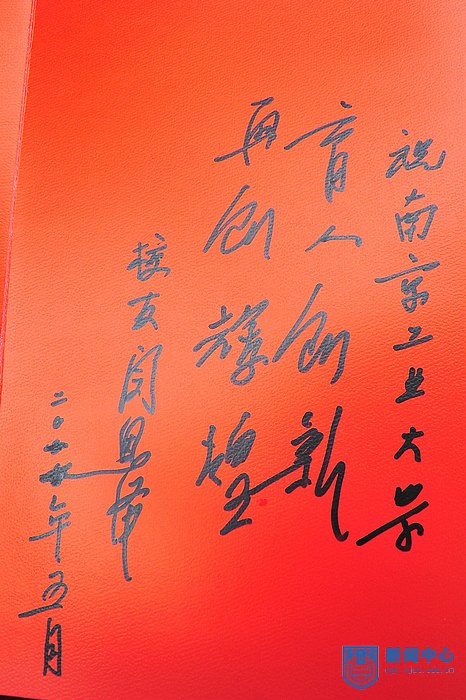 祝南京工业大学
育人创新
再创辉煌
校友闵恩泽
年五月
新闻中心